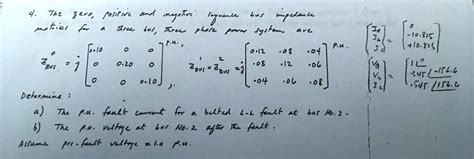 4. The zero, positive and negative sequence bus impedance
matrices for a three bus, three phase power system are
Z⁰BUS = j [0.10 0 0
0 0.20 0
0 0 0.10] p.u.,
Z¹BUS = Z²BUS = j [0.12 .08 .04
.08 .12 .06
.04 .06 .08] P.U.
Determine :
a) The p.u. fault current for a bolted L-L fault at bus No. 3.
b) The p.u. voltage at bus No. 2 after the fault.
Assume pre-fault voltage = 1.0 p.u.
0
-10.825
+10.825